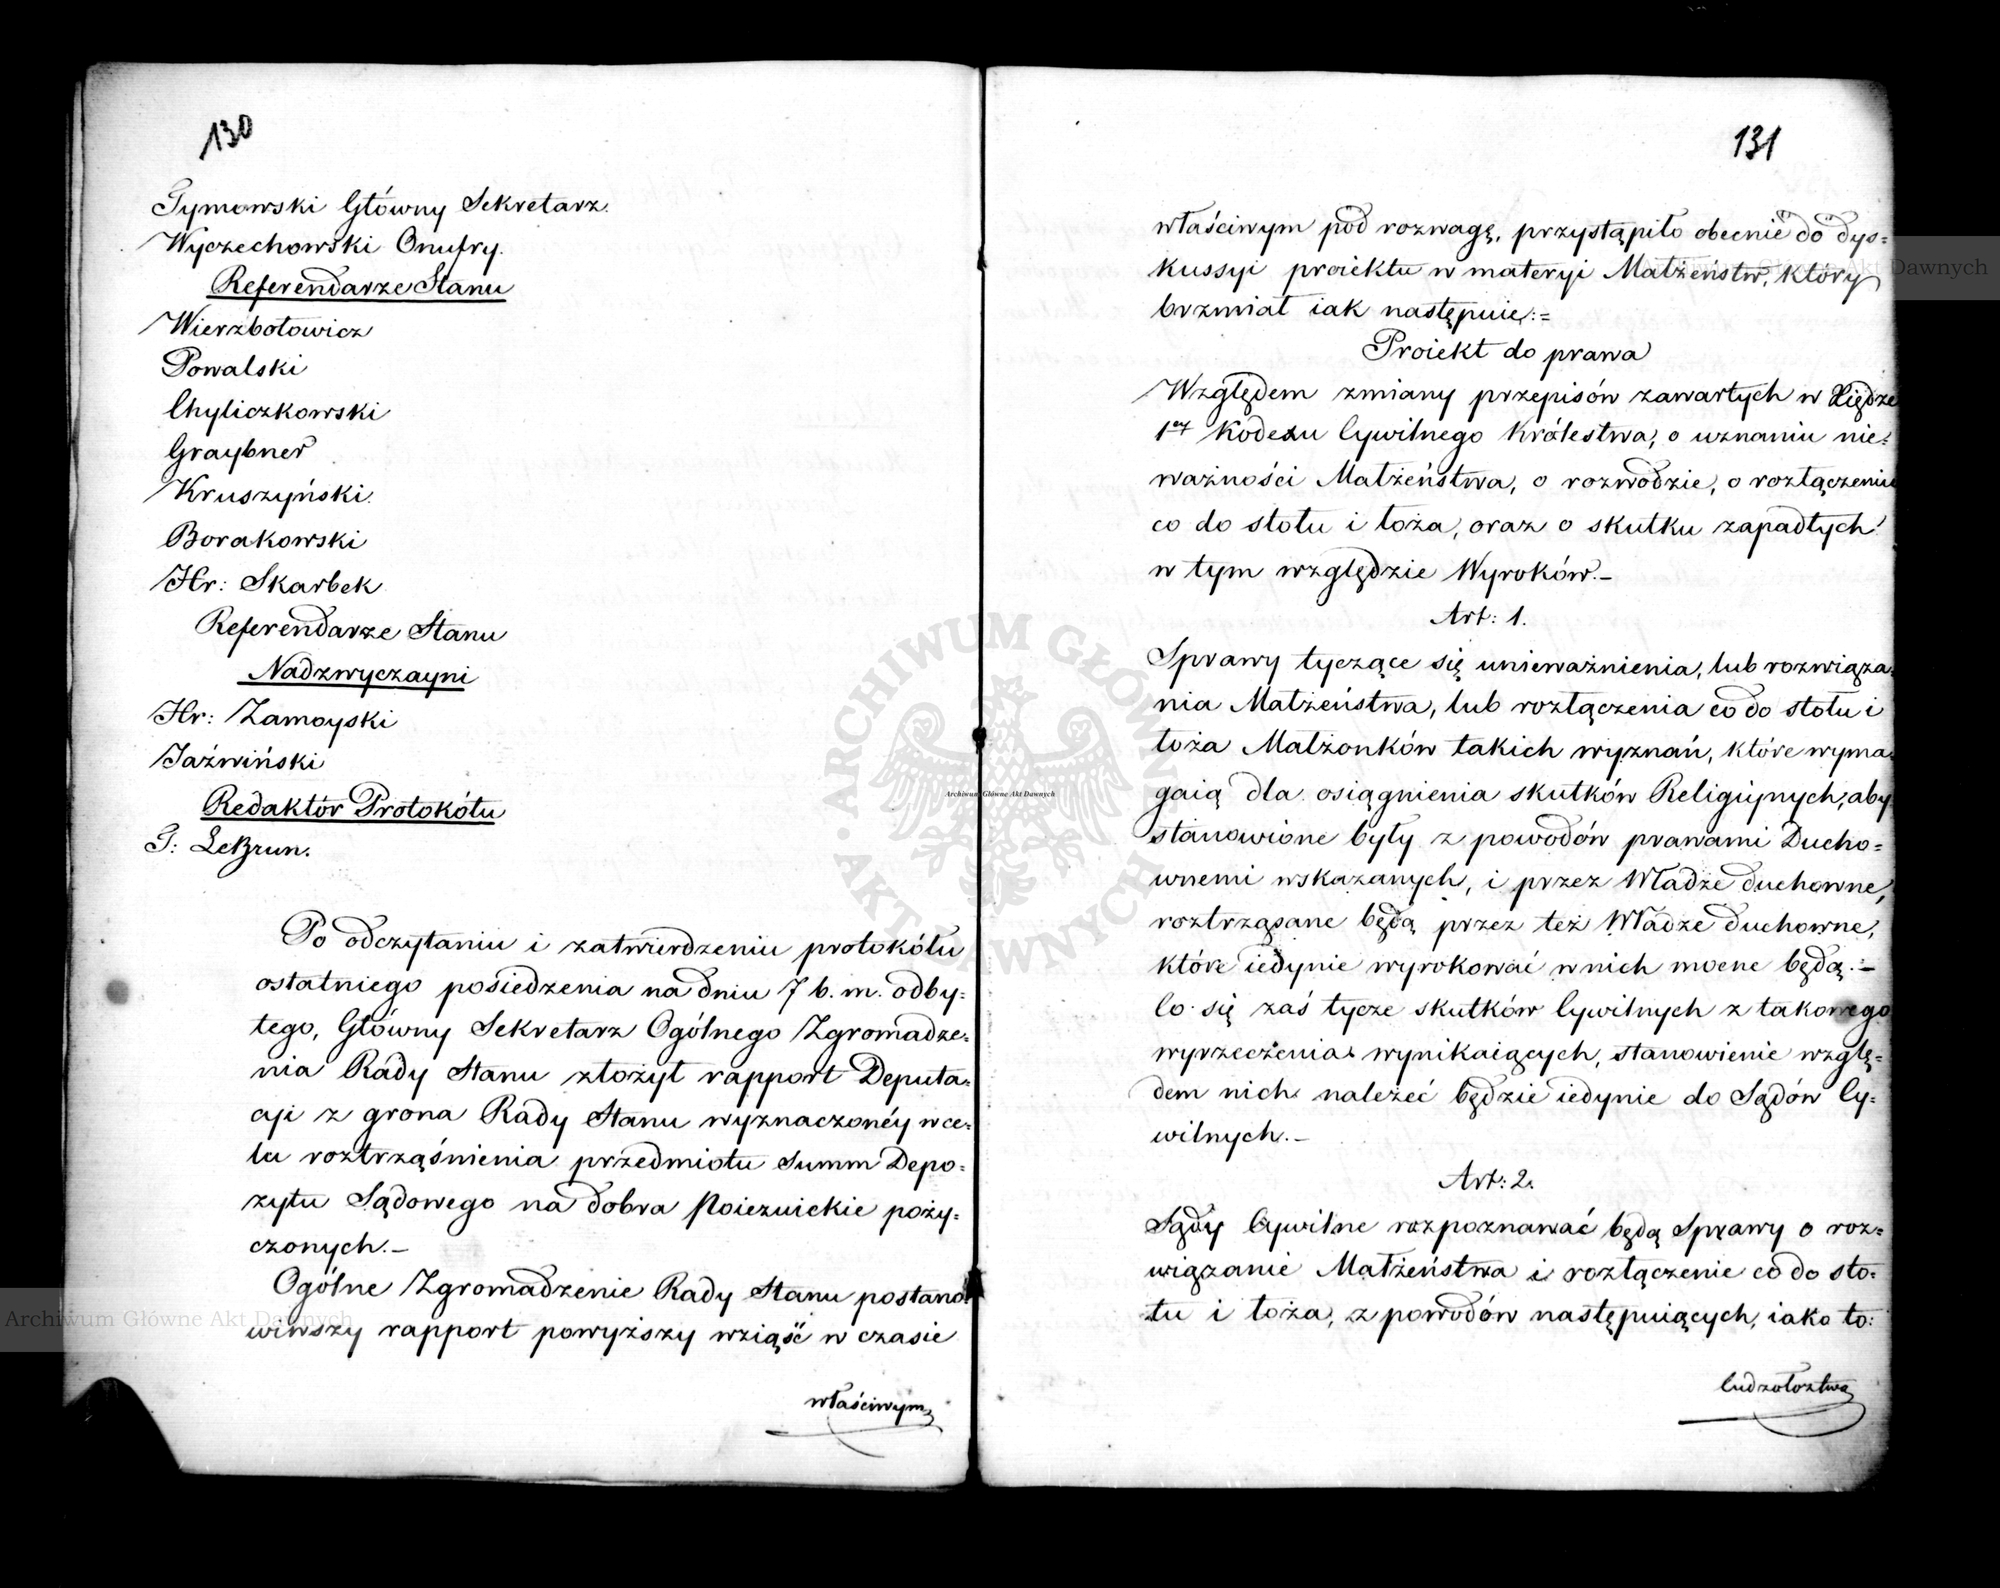 130
Tymowski Główny Sekretarz.
Wyczechowski Onufry.
Referendarze Stanu
Wierzbołowicz
Powalski
Chyliczkowski
Graybner
Kruszyński.
Borakowski
Hr: Skarbek
Referendarze Stanu
Nadzwyczayni
Hr: Zamoyski
Jaźwiński
Redaktór Protokółu
G: LeBrun.
Po odczytaniu i zatwierdzeniu protokółu
ostatniego posiedzenia na dniu 7 b. m. odby=
tego, Główny Sekretarz Ogólnego Zgromadze=
nia Rady Stanu złożył rapport Deputa=
cji z grona Rady Stanu wyznaczonéy w ce=
lu roztrząśnienia przedmiotu Summ Depo=
zytu Sądowego na dobra poży=
czonych.—
Ogólne Zgromadzenie Rady Stanu postano=
wiwszy rapport powyższy wziąść w czasie
właściwym
131
właściwym pod rozwagę, przystąpiło obecnie do dys=
kussyi proiektu w materyi Małżeństw, który
brzmiał iak następuie:=
Proiekt do prawa
Względem zmiany przepisów zawartych w Xiędze
1ey Kodexu Cywilnego Królestwa, o uznaniu nie=
ważności Małżeństwa, o rozwodzie, o rozłączeniu
co do stołu i łoża, oraz o skutku zapadłych
w tym względzie Wyroków.—
Art: 1.
Sprawy tyczące się unieważnienia, lub rozwiąza=
nia Małżeństwa, lub rozłączenia co do stołu i
łoża Małżonków takich wyznań, które wyma=
gaią dla osiągnienia skutków Religiynych, aby
stanowione były z powodów prawami Ducho=
wnemi wskazanych, i przez Władze duchowne,
roztrząsane będą przez też Władze duchowne,
które iedynie wyrokować w nich mocne będą.—
Co się zaś tycze skutków Cywilnych z takowego
wyrzeczenia wynikaiących, stanowienie wzglę=
dem nich należeć będzie iedynie do Sądów Cy=
wilnych.—
Art: 2.
Sądy Cywilne rozpoznawać będą Sprawy o roz=
wiązanie Małżeństwa i rozłączenie co do sto=
łu i łoża, z powodów następuiących, iako to:
Cudzołoztwa
Archiwum Główne Akt Dawnych
Archiwum Główne Akt Dawnych
Archiwum Główne Akt Dawnych
ARCHIWUM GŁÓWNE AKT DAWNYCH